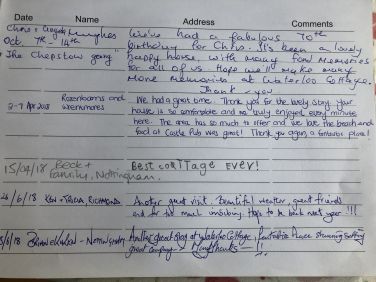 Date Name Address Comments
Chris + Angela Hughes We've had a fabulous 70th
Oct. 7th - 14th birthday for Chris. It's been a lovely
"The Chepstow gang" happy house, with many fond memories
for all of us. Hope we'll make many
more memories at Waterloo Cottage.
Thank-you
2-7 April 2018 Rozenbooms and We had a great time. Thank you for the lovely stay. Your
house is so comfortable and we truly enjoyed every minute
here. The area has so much to offer and we love the beach and
food at Castle Pub was great! Thank you again, a fantastic place!
15/04/18 Beck + Best coRttage EVER!
family, Nottingham.
26/6/18 KEN + TRICIA, RICHMOND Another great visit. Beautiful weather, great friends
and far too much imbibing. Hope to be back next year!!!
/6/18 - Nottingham Another great stay at Waterloo Cottage, fantastic place stunning setting
great company - Many thanks - !!